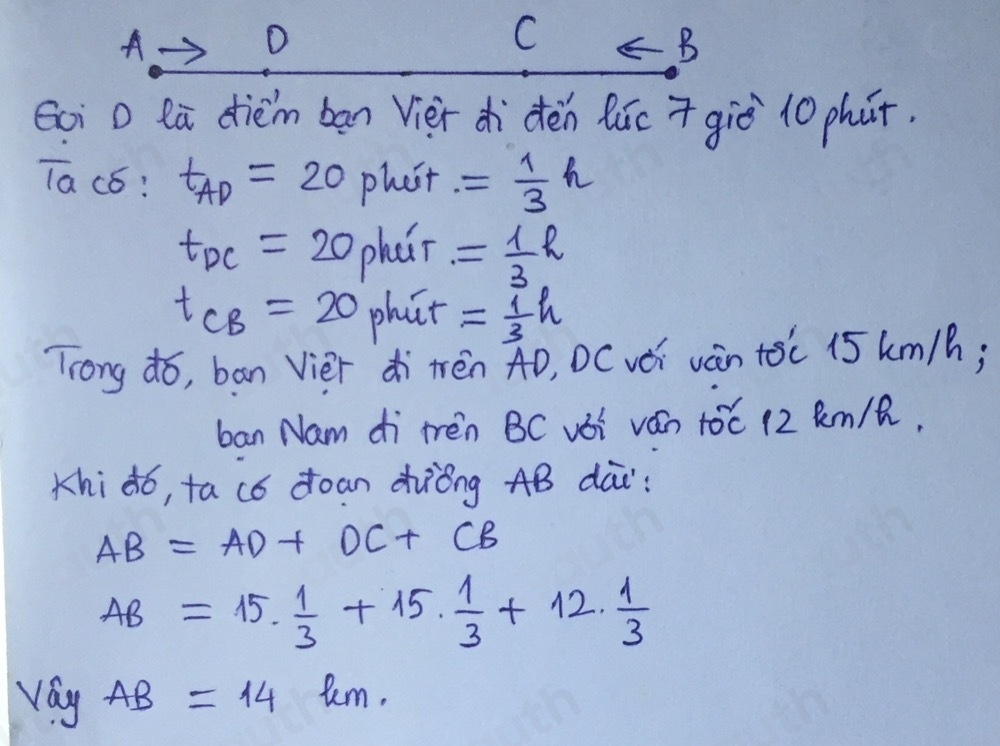 A → D C ← B
Gọi D là điểm bạn Việt đi đến lúc 7 giờ 10 phút.
Ta có: t_AD = 20 phút = 1/3 h
t_DC = 20 phút = 1/3 h
t_CB = 20 phút = 1/3 h
Trong đó, bạn Việt đi trên AD, DC với vận tốc 15 km/h;
bạn Nam đi trên BC với vận tốc 12 km/h.
Khi đó, ta có đoạn đường AB dài:
AB = AD + DC + CB
AB = 15. 1/3 + 15. 1/3 + 12. 1/3
Vậy AB = 14 km.